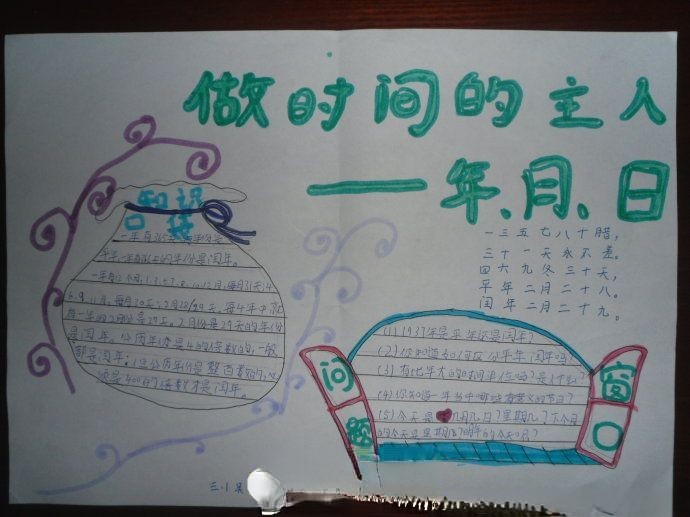 做时间的主人
——年、月、日
知识口袋
一三五七八十腊，
三十一天永不差。
四六九冬三十天，
平年二月二十八。
闰年二月二十九。
一年有365天
一年有12个月，1.3.5.7.8.10.12月，每月31天；4
6.9.11月，每月30天；2月28/29天，每4年中
有一年的2月份是29天。2月份是29天的年份
是闰年。公历年份是4的倍数的，一般
都是闰年；但公历年份是整百数的，必
须是400的倍数才是闰年。
问题
窗口
(1) 1937年是平年还是闰年？
(2) 你知道如何区分平年、闰年吗？
(3) 有比年大的时间单位吗？是什么？
(4) 你知道一年当中哪些有意义的节日？
(5) 今天是几月几日？星期几？下个月
的今天是星期几？
三.1 吴